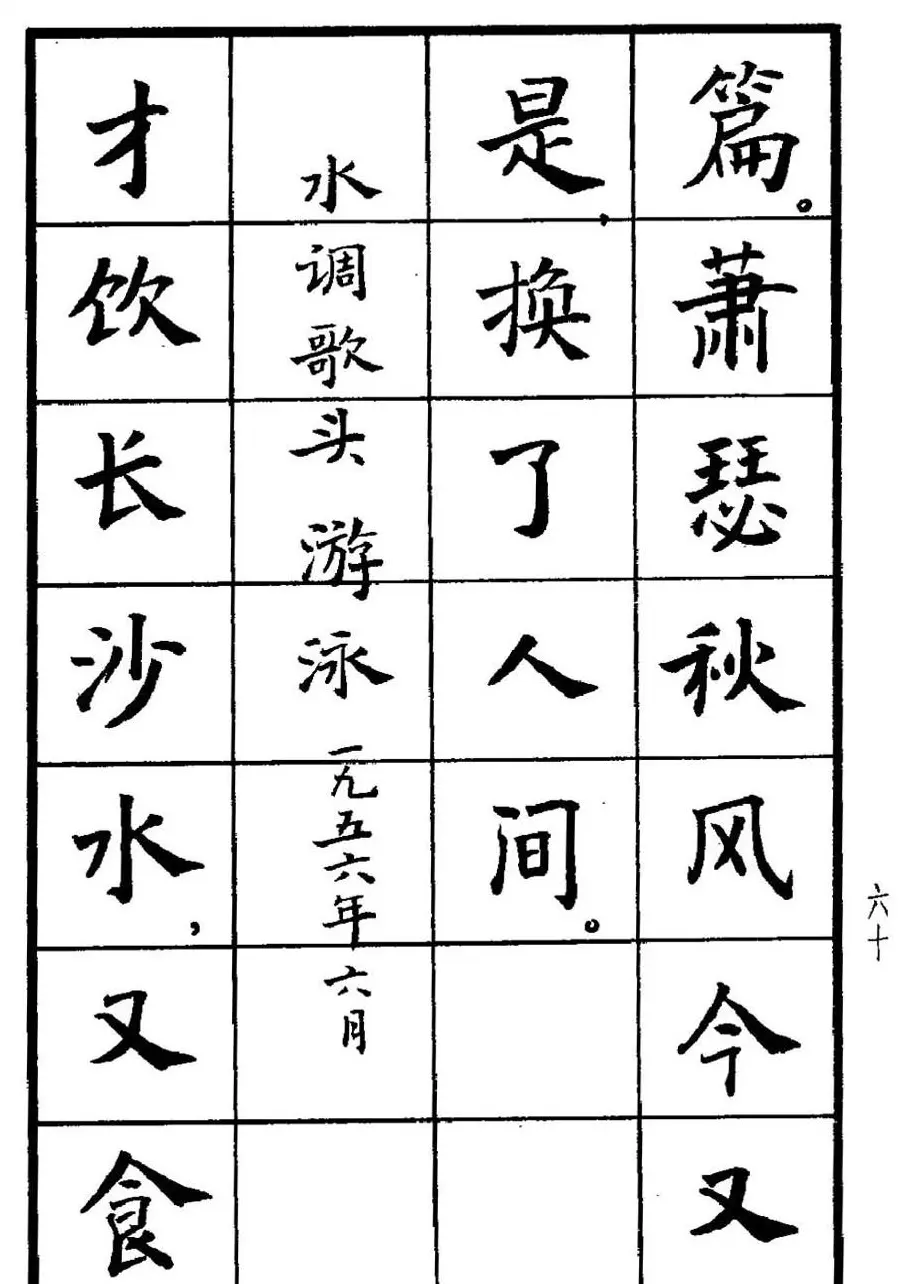 篇。萧瑟秋风今又
是，换了人间。
水调歌头 游泳 一九五六年六月
才饮长沙水，又食
六十